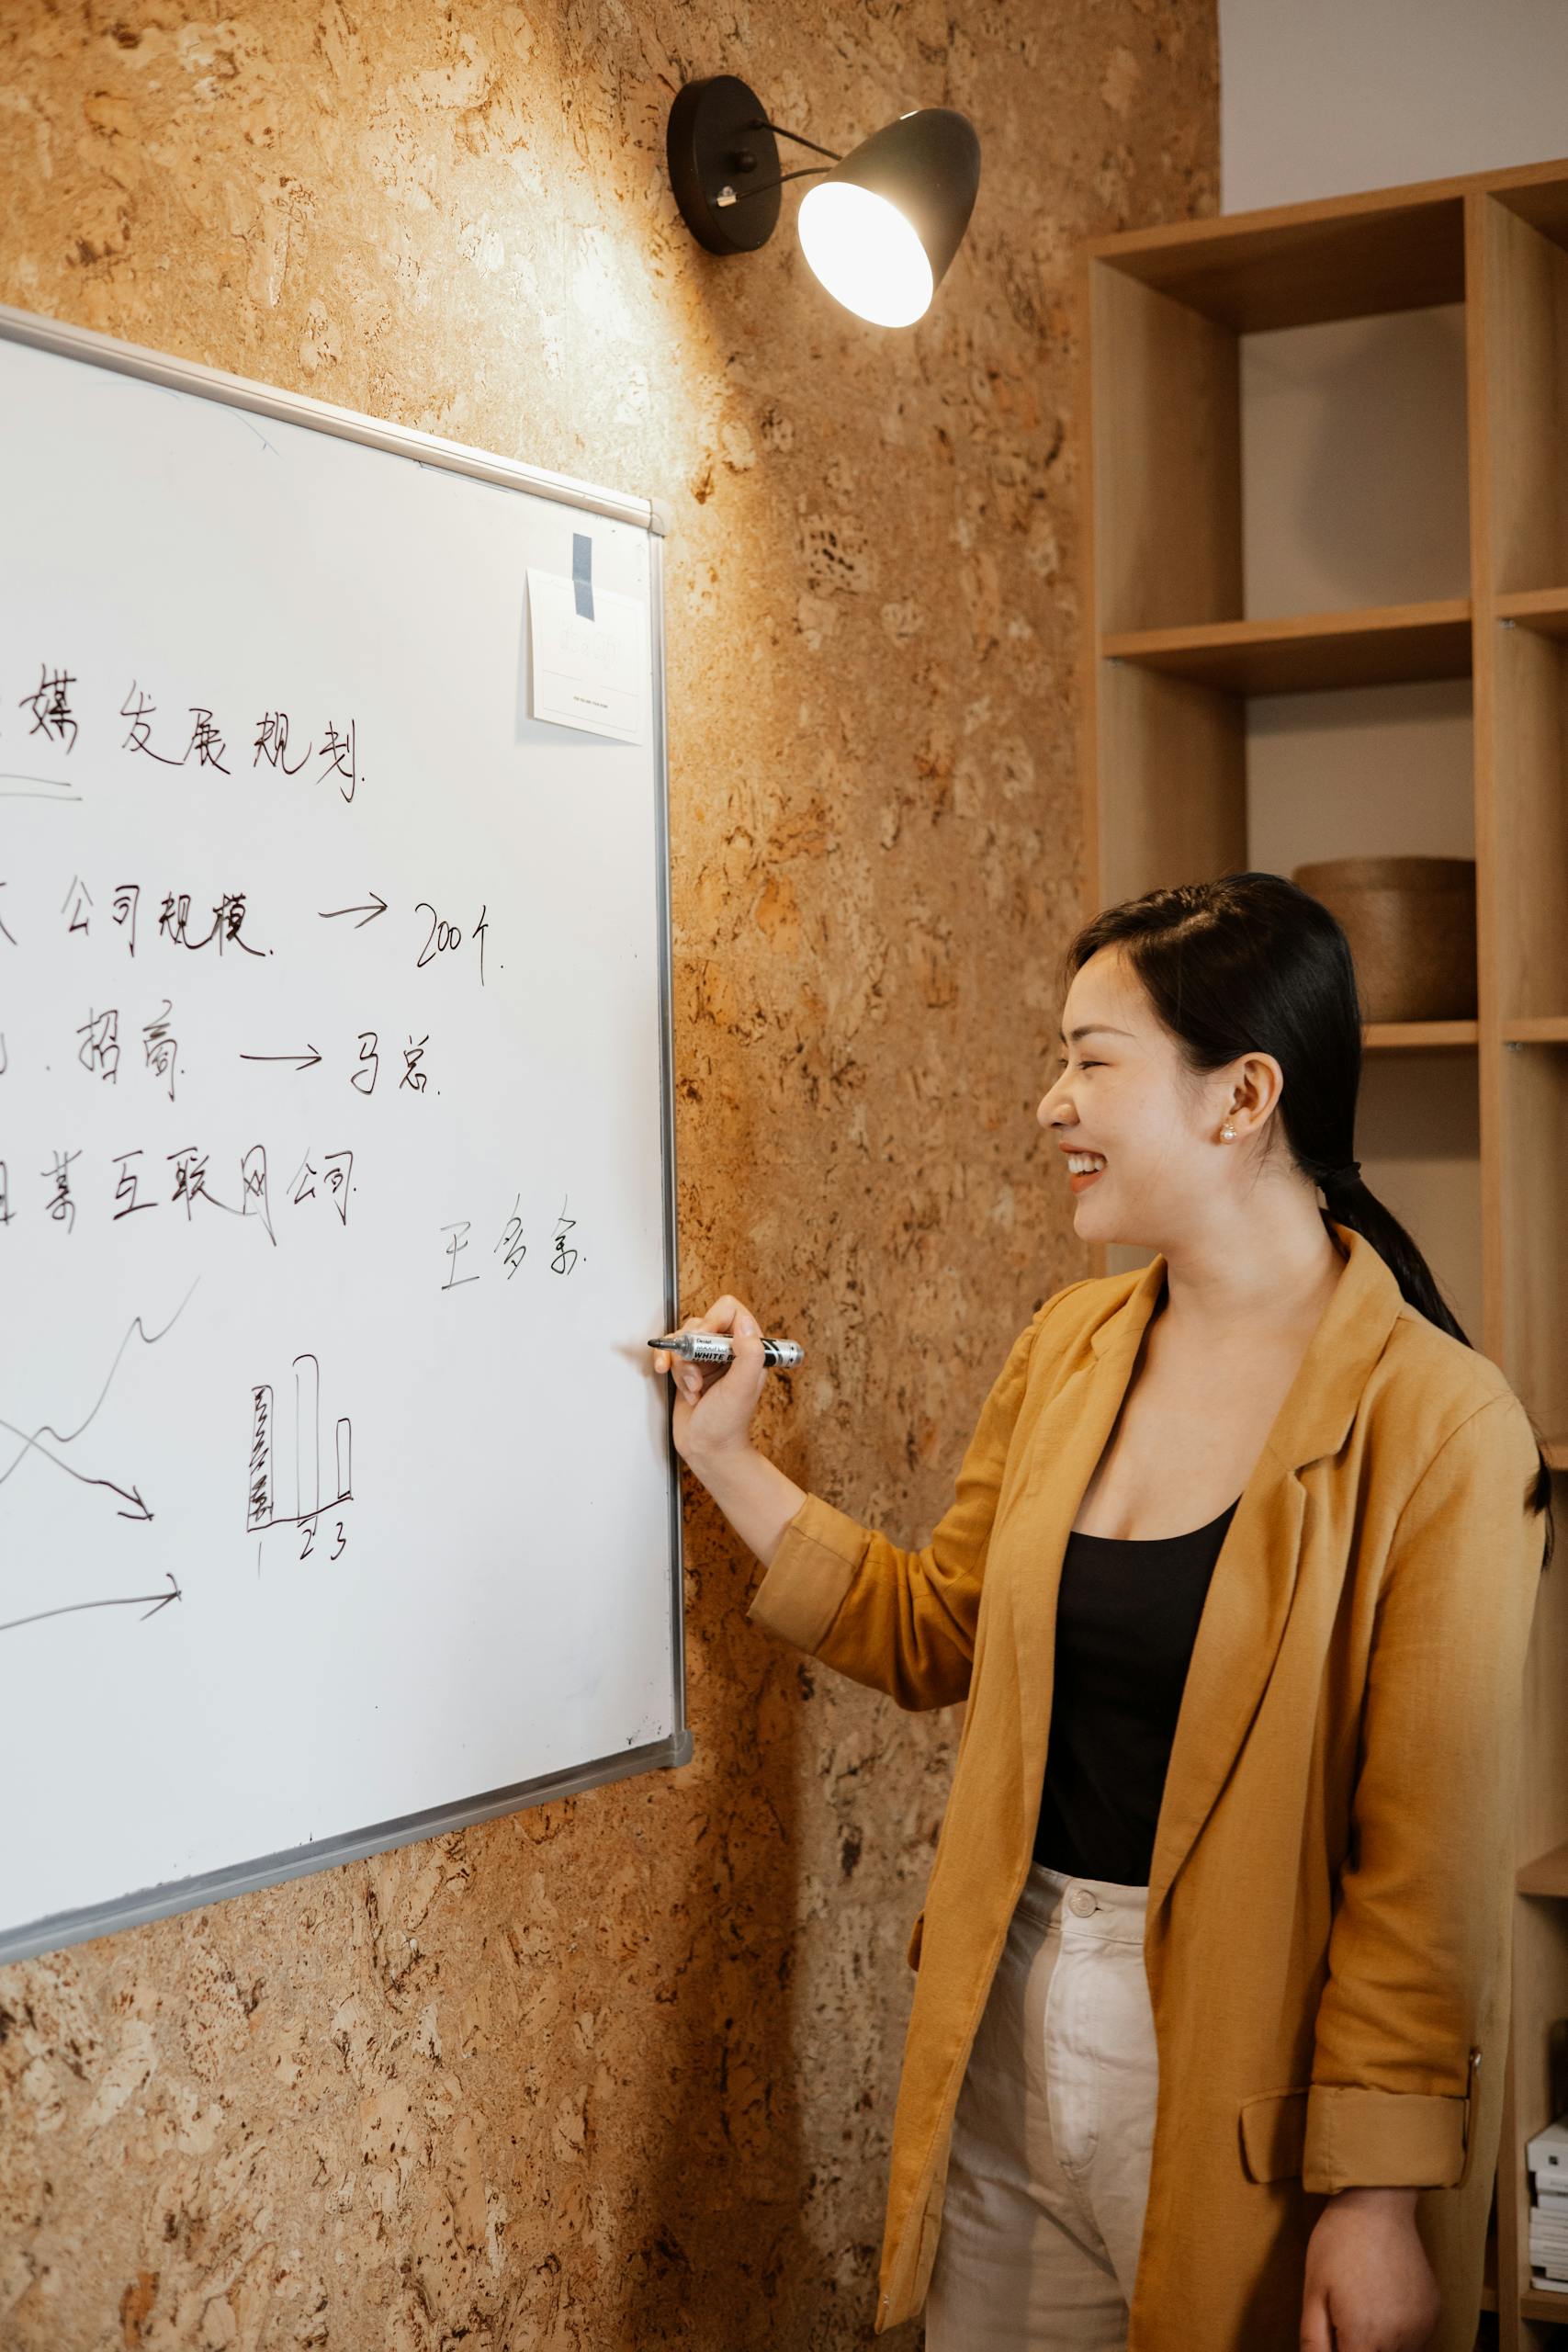 媒 发展规划.
公司规模. → 200个.
. 招商. → 马总.
某互联网公司.
王多余.
1 2 3
WHITE B